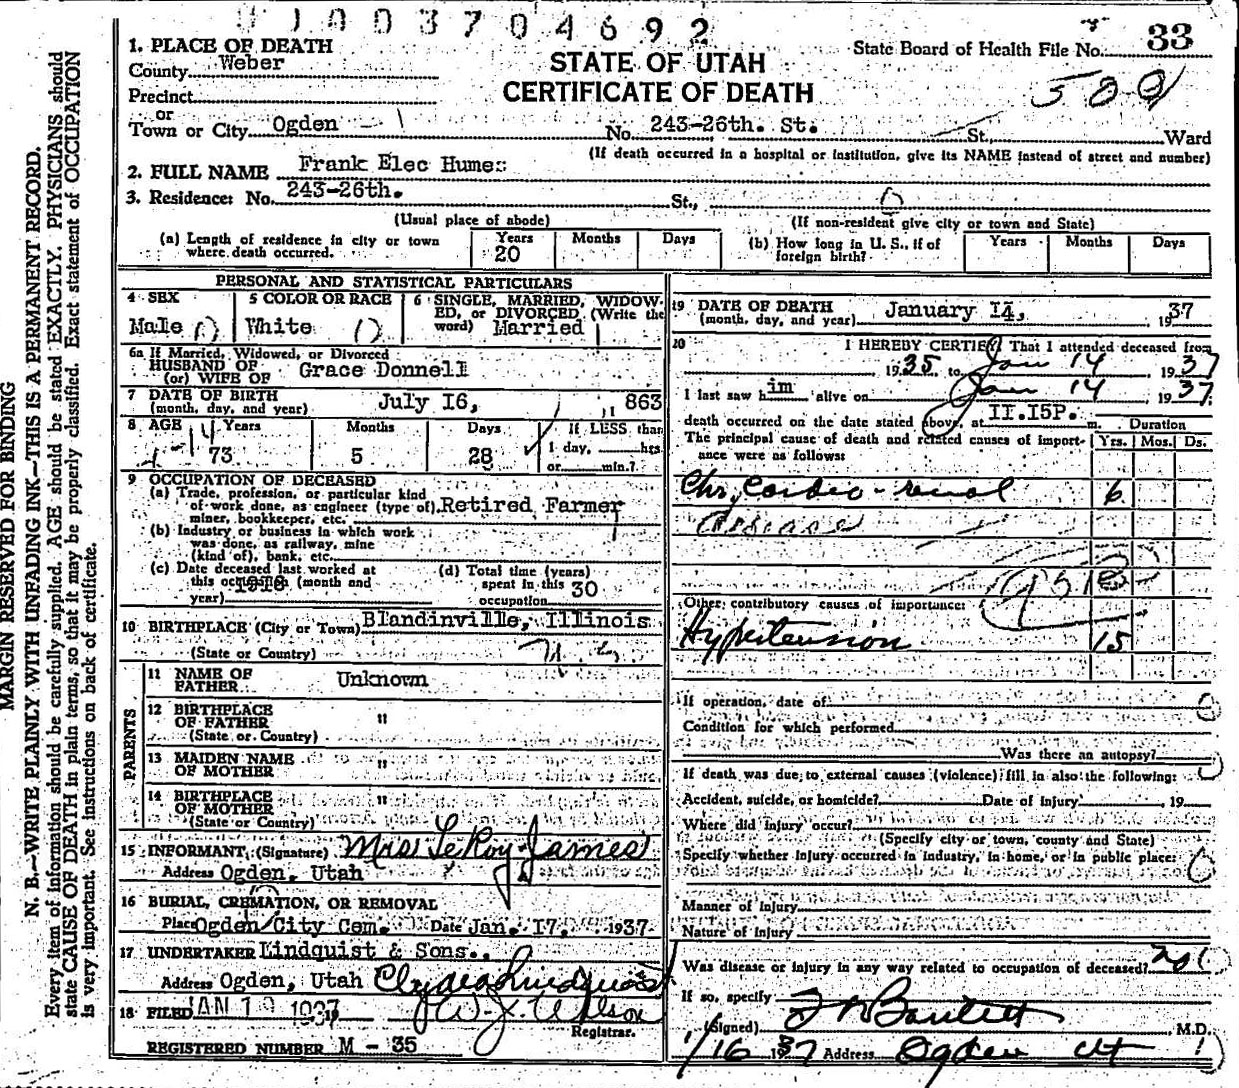 MARGIN RESERVED FOR BINDING
N. B.—WRITE PLAINLY WITH UNFADING INK—THIS IS A PERMANENT RECORD.
Every item of information should be carefully supplied. AGE should be stated EXACTLY. PHYSICIANS should
state CAUSE OF DEATH in plain terms, so that it may be properly classified. Exact statement of OCCUPATION
is very important. See instructions on back of certificate.
1003704692
State Board of Health File No. 33
1. PLACE OF DEATH
County Weber
STATE OF UTAH
CERTIFICATE OF DEATH
Precinct
or
Town or City Ogden No. 243-26th. St. St., Ward
(If death occurred in a hospital or institution, give its NAME instead of street and number)
2. FULL NAME Frank Elec Humes
3. Residence: No. 243-26th. St.,
(Usual place of abode) (If non-resident give city or town and State)
(a) Length of residence in city or town where death occurred. Years 20 Months Days
(b) How long in U. S., if of foreign birth? Years Months Days
PERSONAL AND STATISTICAL PARTICULARS
4 SEX Male
5 COLOR OR RACE White
6 SINGLE, MARRIED, WIDOWED, OR DIVORCED (Write the word) Married
6a If Married, Widowed, or Divorced
HUSBAND OF
(or) WIFE OF Grace Donnell
7 DATE OF BIRTH
(month, day, and year) July I6, 1863
8 AGE Years 73 Months 5 Days 28
If LESS than
1 day, hrs.
or min.?
9 OCCUPATION OF DECEASED
(a) Trade, profession, or particular kind
of work done, as engineer (type of), Retired Farmer
miner, bookkeeper, etc.
(b) Industry or business in which work
was done, as railway, mine
(kind of), bank, etc.
(c) Date deceased last worked at
this occupation (month and
year) 1918
(d) Total time (years)
spent in this 30
occupation
10 BIRTHPLACE (City or Town) Blandinville, Illinois
(State or Country)
PARENTS
11 NAME OF
FATHER Unknown
12 BIRTHPLACE
OF FATHER "
(State or Country)
13 MAIDEN NAME
OF MOTHER "
14 BIRTHPLACE
OF MOTHER "
(State or Country)
15 INFORMANT, (Signature) Mrs LeRoy James
Address Ogden, Utah
16 BURIAL, CREMATION, OR REMOVAL
Place Ogden City Cem. Date Jan. I7, 1937
17 UNDERTAKER Lindquist & Sons.,
Address Ogden, Utah
18 FILED JAN 19 1937 W. J. Wilson
Registrar.
REGISTERED NUMBER M - 35
19 DATE OF DEATH
(month, day, and year) January I4, 1937
20 I HEREBY CERTIFY, That I attended deceased from
1935 to Jan 14 1937
I last saw him alive on Jan 14 1937
death occurred on the date stated above, at II.I5P. m. Duration
The principal cause of death and related causes of importance were as follows: Yrs. Mos. Ds.
Chr. Cardio-renal 6
disease
Other contributory causes of importance:
Hypertension 15
If operation, date of
Condition for which performed
Was there an autopsy?
If death was due to external causes (violence) fill in also the following:
Accident, suicide, or homicide? Date of injury 19
Where did injury occur?
(Specify city or town, county and State)
Specify whether injury occurred in industry, in home, or in public place:
Manner of Injury
Nature of Injury
Was disease or injury in any way related to occupation of deceased?
If so, specify
(Signed) Bartlett M.D.
1/16 1937 Address Ogden Ut